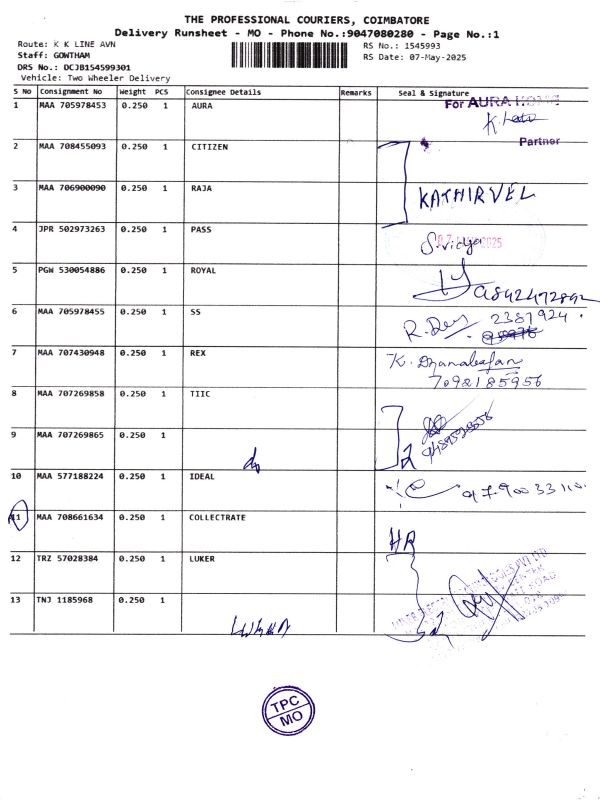 THE PROFESSIONAL COURIERS, COIMBATORE
Delivery Runsheet - MO - Phone No.:9047080280 - Page No.:1
Route: K K LINE AVN
RS No.: 1545993
Staff: GOWTHAM
RS Date: 07-May-2025
DRS No.: DCJB154599301
Vehicle: Two Wheeler Delivery
S No Consignment No Weight PCS Consignee Details Remarks Seal & Signature
1 MAA 705978453 0.250 1 AURA For AURA
Partner
2 MAA 708455093 0.250 1 CITIZEN
3 MAA 706900090 0.250 1 RAJA KATHIRVEL
4 JPR 502973263 0.250 1 PASS S.vidya 2025
5 PGW 530054886 0.250 1 ROYAL
6 MAA 705978455 0.250 1 SS 2387924
7 MAA 707430948 0.250 1 REX K. Dhanalakshmi
7092185956
8 MAA 707269858 0.250 1 TIIC
9 MAA 707269865 0.250 1 2
10 MAA 577188224 0.250 1 IDEAL
11 MAA 708661634 0.250 1 COLLECTRATE HR
12 TRZ 57028384 0.250 1 LUKER
13 TNJ 1185968 0.250 1
TPC
MO